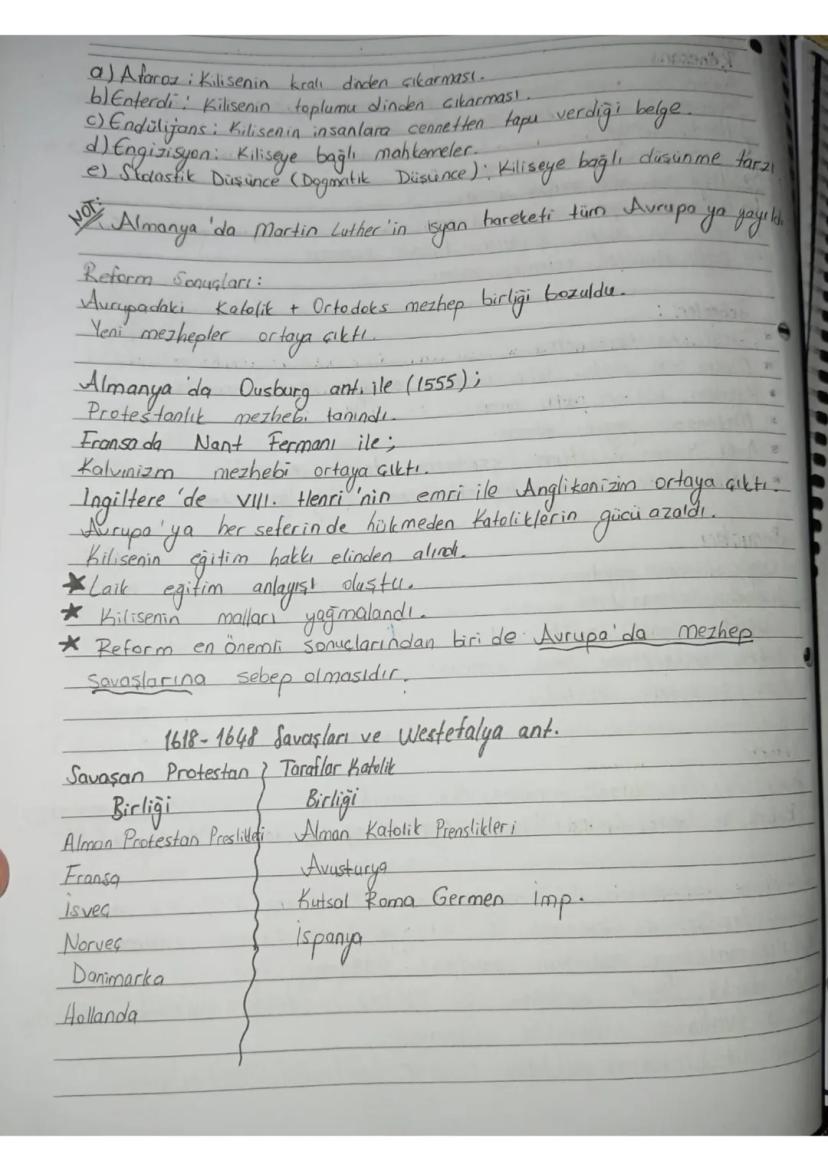 a) Aforoz : Kilisenin kralı dinden çıkarması.
b) Enterdi : Kilisenin toplumu dinden çıkarması.
c) Endülijans : Kilisenin insanlara cennetten tapu verdiği belge.
d) Engizisyon : Kiliseye bağlı mahkemeler.
e) Skolastik Düşünce (Dogmatik Düşünce) : Kiliseye bağlı düşünme tarzı
NOT: Almanya'da Martin Luther'in isyan hareketi tüm Avrupa ya yayıldı
Reform Sonuçları :
Avrupadaki Katolik + Ortodoks mezhep birliği bozuldu.
Yeni mezhepler ortaya çıktı.
Almanya'da Ousburg ant. ile (1555) ;
Protestanlık mezhebi tanındı.
Fransada Nant Fermanı ile ;
Kalvinizm mezhebi ortaya çıktı.
İngiltere'de VIII. Henri'nin emri ile Anglikanizim ortaya çıktı.
Avrupa'ya her seferinde hükmeden Katoliklerin gücü azaldı.
Kilisenin eğitim hakkı elinden alındı.
★ Laik eğitim anlayışı oluştu.
★ Kilisenin malları yağmalandı.
★ Reform en önemli sonuçlarından biri de Avrupa'da mezhep
savaşlarına sebep olmasıdır.
1618-1648 Savaşları ve Westefalya ant.
Savaşan Protestan Taraflar Katolik
Birliği Birliği
Alman Protestan Alman Katolik Prenslikleri
Fransa Avusturya
İsveç Kutsal Roma Germen imp.
Norveç İspanya
Danimarka
Hollanda